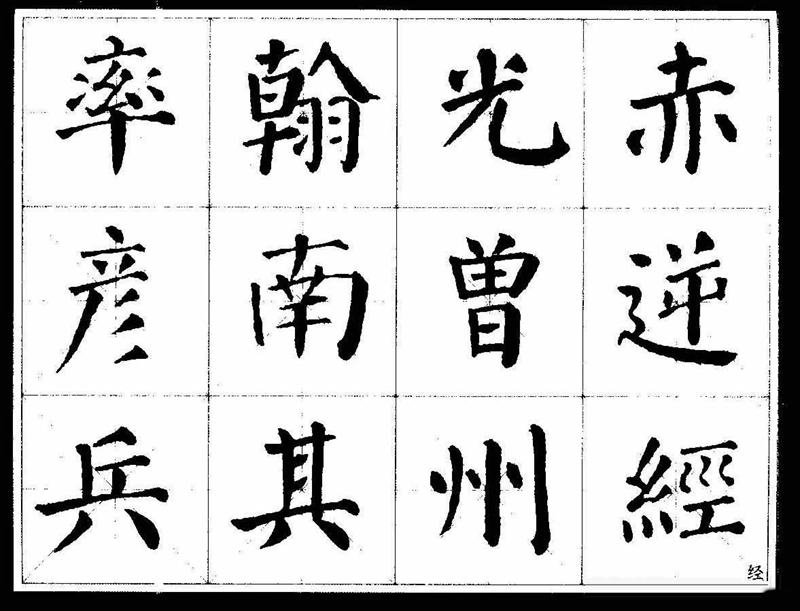 赤逆經
光曾州
翰南其
率彦兵
经